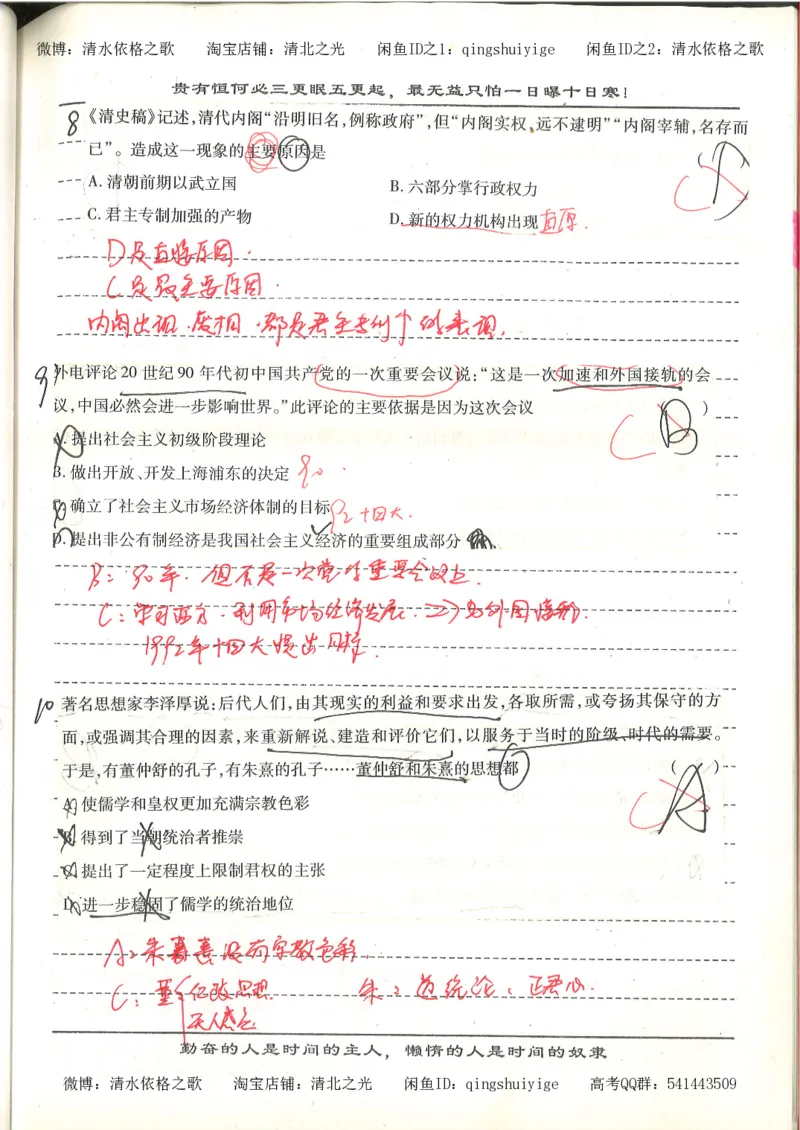 微博：清水依格之歌 淘宝店铺：清北之光 闲鱼ID之1：qingshuiyige 闲鱼ID之2：清水依格之歌
贵有恒何必三更眠五更起，最无益只怕一日曝十日寒！
8 《清史稿》记述，清代内阁“沿明旧名，例称政府”，但“内阁实权，远不逮明”“内阁宰辅，名存而
已”。造成这一现象的主要原因是
A. 清朝前期以武立国 B. 六部分掌行政权力
C
C. 君主专制加强的产物 D. 新的权力机构出现 直原.
D是直接原因.
C是最主要原因.
内阁出现.废相.都是君主专制个的表现.
9 外电评论20世纪90年代初中国共产党的一次重要会议说：“这是一次加速和外国接轨的会
议，中国必然会进一步影响世界。”此评论的主要依据是因为这次会议 ( B )
C
A. 提出社会主义初级阶段理论
B. 做出开放、开发上海浦东的决定 90.
C. 确立了社会主义市场经济体制的目标 92十四大.
D. 提出非公有制经济是我国社会主义经济的重要组成部分
B：90年.但不是一次党的重要会议上.
C：学习西方.利用市场经济发展.=>与外国接轨.
1992年十四大提出目标.
10 著名思想家李泽厚说：后代人们，由其现实的利益和要求出发，各取所需，或夸扬其保守的方
面，或强调其合理的因素，来重新解说、建造和评价它们，以服务于当时的阶级、时代的需要。
于是，有董仲舒的孔子，有朱熹的孔子……董仲舒和朱熹的思想都 ( )
C A
A. 使儒学和皇权更加充满宗教色彩
B. 得到了当朝统治者推崇
C. 提出了一定程度上限制君权的主张
D. 进一步稳固了儒学的统治地位
A：朱熹没有宗教色彩.
C：董 朱：道统论：正君心.
天人感应
勤奋的人是时间的主人，懒惰的人是时间的奴隶
微博：清水依格之歌 淘宝店铺：清北之光 闲鱼ID：qingshuiyige 高考QQ群：541443509